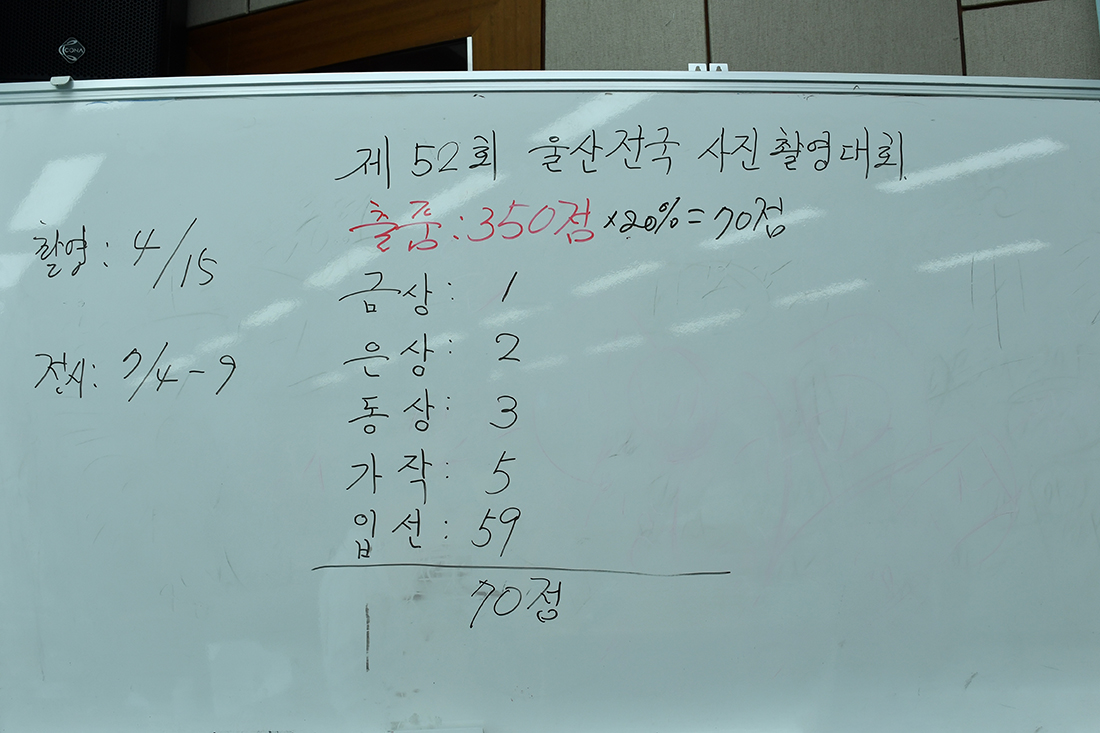 CGNA
제 52회 울산전국 사진촬영대회
출품 : 350점 × 20% = 70점
촬영 : 4/15
전시 : 7/4 - 9
금상 : 1
은상 : 2
동상 : 3
가작 : 5
입선 : 59
70점